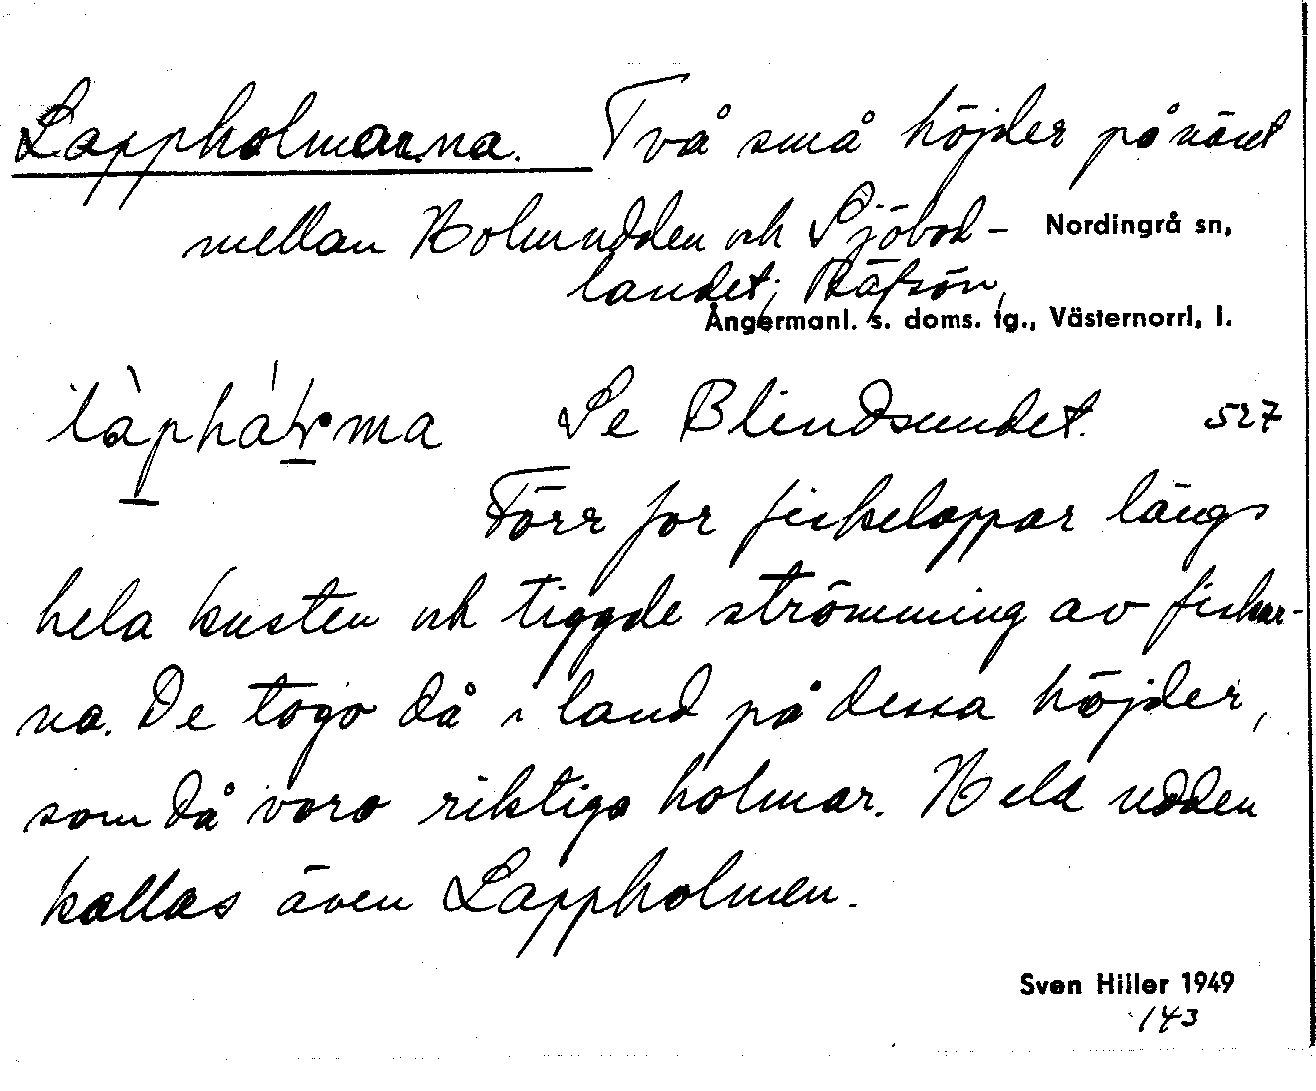 Lappholmarna. Två små höjder på näset
mellan Holmudden och Sjöbod-
Nordingrå sn,
landet; Räfsön,
Ångermanl. s. doms. tg., Västernorrl, l.
Se Blindsundet. 527
Förr for fiskelappar längs
hela kusten och tiggde strömming av fiskar-
na. De togo då i land på dessa höjder,
som då voro riktiga holmar. Hela udden
kallas även Lappholmen.
Sven Hiller 1949
143